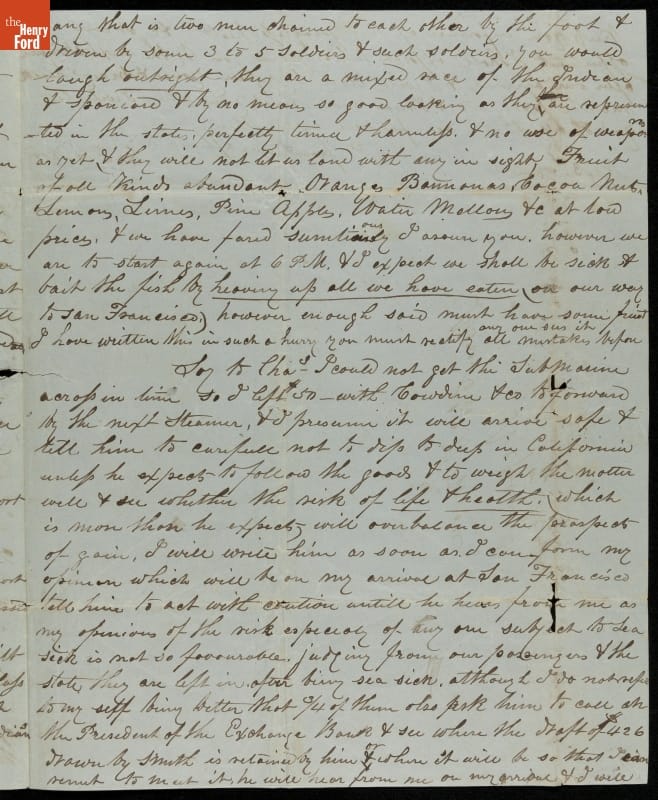 the
Henry
Ford
gang that is two men chained to each other by the foot &
driven by some 3 to 5 soldiers & such soldiers, you would
laugh outright, they are a mixed race of the Indian
& Spaniard & by no means so good looking as they are represen
ted in the states, perfectly timed & harmless. & no use of weapons
as yet & they will not let us land with any in sight Fruit
of all kinds abundant. Oranges Bannonas, Cocoa Nuts.
Lemons, Limes, Pine Apples, Water Mellons &c at low
prices, & we have fared sumtiously I assure you. however we
are to start again at 6 P.M. & I expect we shall be sick &
bait the fish by heaving up all we have eaten (on our way
to San Francisco) however enough said must have some fruit
any one sees it
I have written this in such a hurry you must rectify all mistakes before
Say to Chas. I could not get the Submarine
across in time so I left $50 - with Cowdine & co to forward
by the next Steamer, & I presume it will arrive safe &
tell him to carefull not to dip to deep in California
unless he expects to follow the goods & to weigh the matter
well & see whether the risk of life & health, which
is more than he expects will overbalance the prospects
of gain, I will write him as soon as I can form my
opinion which will be on my arrival at San Francisco
tell him to act with caution untill he hears from me as
my opinions of the risk especialy of any one subject to sea
sick is not so favourable. judging from our passengers & the
state they are left in after being sea sick, although I do not
to my self being better that 3/4 of them also ask him to call on
the President of the Exchange Bank & see where the draft of $426
drawn by Smith is retained by him & where it will be so that I can
remit to meet it, he will hear from me on my arrival & I will